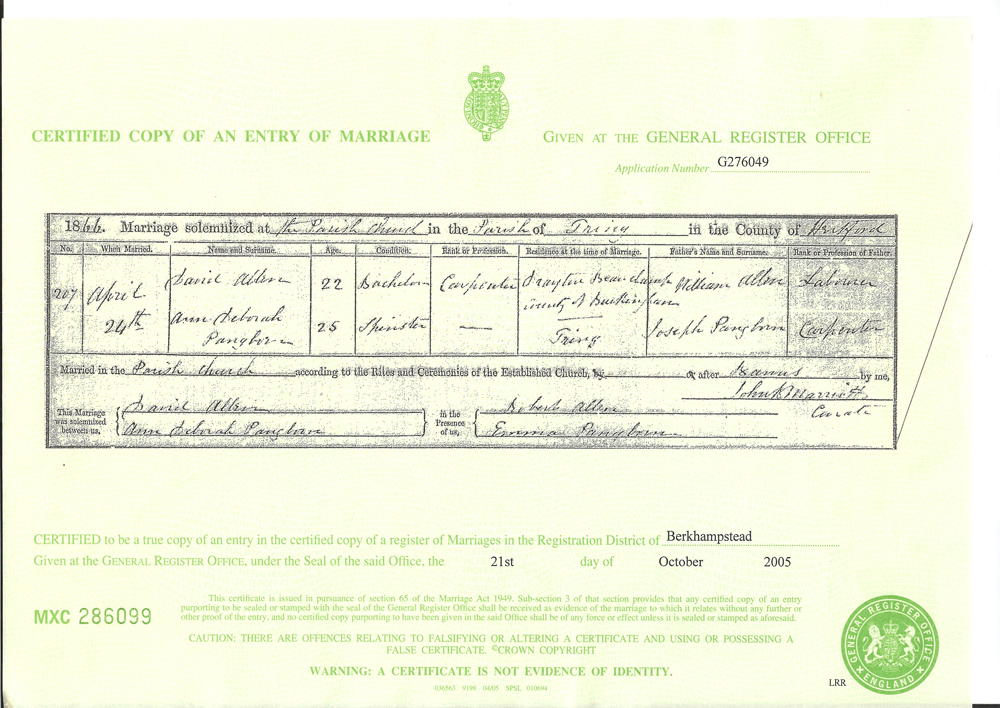 CERTIFIED COPY OF AN ENTRY OF MARRIAGE
GIVEN AT THE GENERAL REGISTER OFFICE
Application Number G276049
1866. Marriage solemnized at the Parish Church in the Parish of Tring in the County of Hertford
No. When Married. Name and Surname. Age. Condition. Rank or Profession. Residence at the time of Marriage. Father's Name and Surname. Rank or Profession of Father.
207 April 24th
David Allen 22 Bachelor Carpenter Drayton Beauchamp County of Buckingham William Allen Labourer
Ann Deborah Pangborn 25 Spinster — Tring Joseph Pangborn Carpenter
Married in the Parish Church according to the Rites and Ceremonies of the Established Church, by or after Banns by me,
John B Marriott
Curate
This Marriage was solemnized between us, David Allen
Ann Deborah Pangborn
in the Presence of us, Robert Allen
Emma Pangborn
CERTIFIED to be a true copy of an entry in the certified copy of a register of Marriages in the Registration District of Berkhampstead
Given at the GENERAL REGISTER OFFICE, under the Seal of the said Office, the 21st day of October 2005
MXC 286099
This certificate is issued in pursuance of section 65 of the Marriage Act 1949. Sub-section 3 of that section provides that any certified copy of an entry
purporting to be sealed or stamped with the seal of the General Register Office shall be received as evidence of the marriage to which it relates without any further or
other proof of the entry, and no certified copy purporting to have been given in the said Office shall be of any force or effect unless it is sealed or stamped as aforesaid.
CAUTION: THERE ARE OFFENCES RELATING TO FALSIFYING OR ALTERING A CERTIFICATE AND USING OR POSSESSING A
FALSE CERTIFICATE. ©CROWN COPYRIGHT
WARNING: A CERTIFICATE IS NOT EVIDENCE OF IDENTITY.
036563 9199 04/05 SPSL 010694
LRR
GENERAL REGISTER OFFICE
ENGLAND